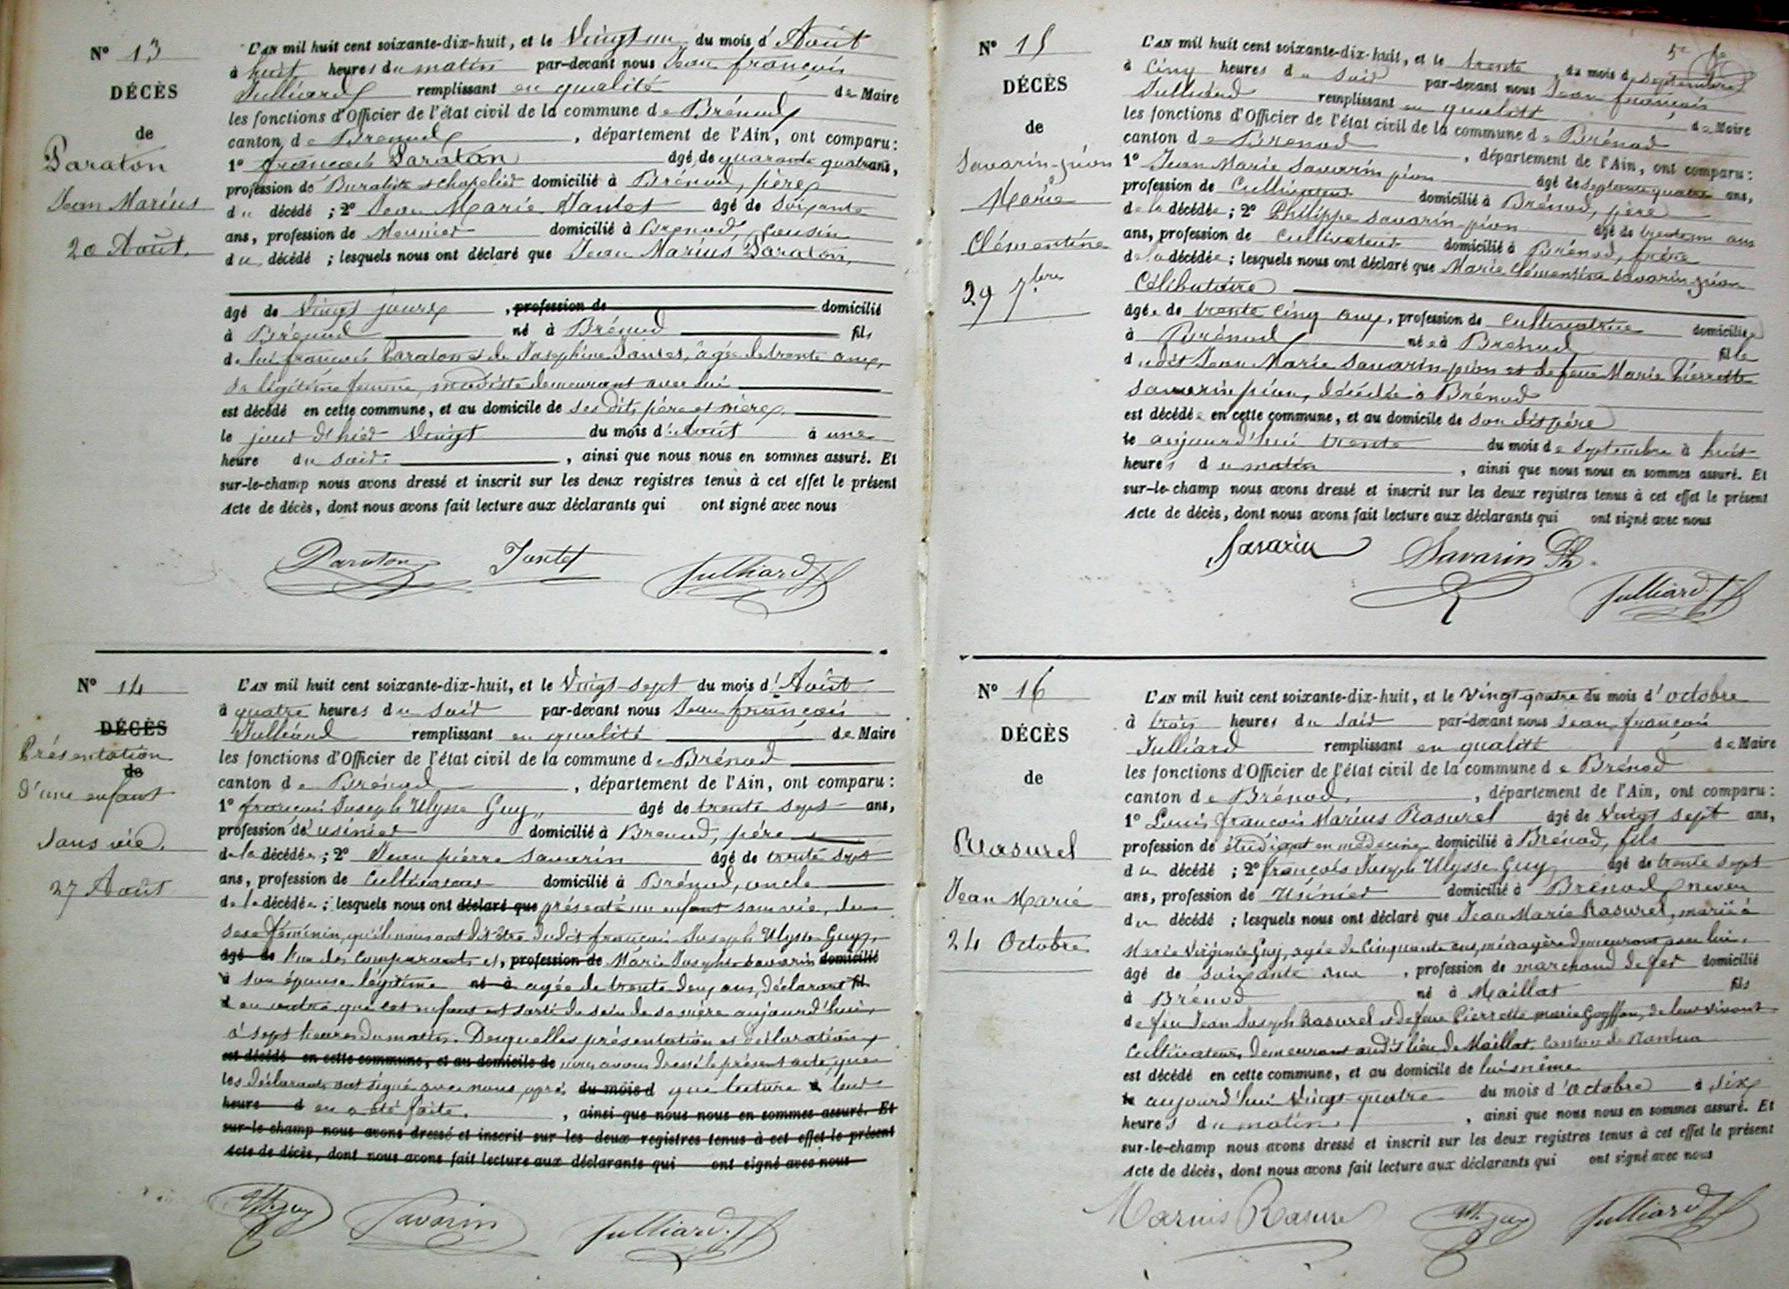 N° 13
DÉCÈS
de
Paraton
Jean Marius
20 Août.
L'AN mil huit cent soixante-dix-huit, et le Vingt un du mois d'Août
à huit heures du matin par-devant nous Jean françois
Julliard remplissant en qualité de Maire
les fonctions d'Officier de l'état civil de la commune de Brénod
canton de Brenod, département de l'Ain, ont comparu:
1° françois Paraton âgé de quarante quatre ans,
profession de Buraliste et chapelier domicilié à Brénod, père
du décédé; 2° Jean Marie Jantet âgé de soixante
ans, profession de Meunier domicilié à Brenod, Cousin
du décédé; lesquels nous ont déclaré que Jean Marius Paraton,
âgé de Vingt jours, profession de domicilié
à Brénod né à Brénod fils
de lui françois Paraton et de Joséphine Jantet, âgée de trente ans,
sa légitime femme, modiste demeurant avec lui
est décédé en cette commune, et au domicile de ses dits père et mère,
le jour d'hier Vingt du mois d'Août à une
heure du soir, ainsi que nous nous en sommes assuré. Et
sur-le-champ nous avons dressé et inscrit sur les deux registres tenus à cet effet le présent
Acte de décès, dont nous avons fait lecture aux déclarants qui ont signé avec nous
Paraton Jantet Julliard
N° 14
DÉCÈS
Présentation
de
d'une enfant
sans vie.
27 Août
L'AN mil huit cent soixante-dix-huit, et le Vingt-sept du mois d'Août
à quatre heures du soir par-devant nous Jean françois
Julliard remplissant en qualité de Maire
les fonctions d'Officier de l'état civil de la commune de Brénod
canton de Brénod, département de l'Ain, ont comparu:
1° françois Joseph Ulysse Guy, âgé de trente sept ans,
profession de usinier domicilié à Brenod, père
de la décédée; 2° Jean pierre Savarin âgé de trente sept
ans, profession de Cultivateur domicilié à Brénod, oncle
de la décédée; lesquels nous ont déclaré que présenté un enfant sans vie, du
sexe féminin, qu'ils nous ont dit être du dit françois Joseph Ulysse Guy,
âgé de l'un des comparants et, profession de Marie Josephte Savarin domicilié
à son épouse légitime né à agée de trente deux ans, déclarant fil
d en outre que cet enfant est sorti du sein de sa mère aujourd'hui,
à sept heures du matin. Desquelles présentation et déclaration,
est décédé en cette commune, et au domicile de nous avons dressé le présent acte, que
les déclarants ont signé avec nous, après du mois d que lecture à leur
heure d en a été faite., ainsi que nous nous en sommes assuré. Et
sur-le-champ nous avons dressé et inscrit sur les deux registres tenus à cet effet le présent
Acte de décès, dont nous avons fait lecture aux déclarants qui ont signé avec nous
Guy Savarin Julliard
5e
N° 15
DÉCÈS
de
Savarin-pion
Marie
Clémentine
29 7bre
L'AN mil huit cent soixante-dix-huit, et le trente du mois de septembre
à Cinq heures du soir par-devant nous Jean françois
Julliard remplissant en qualité de Maire
les fonctions d'Officier de l'état civil de la commune de Brénod
canton de Brenod, département de l'Ain, ont comparu:
1° Jean Marie Savarin pion âgé de septante quatre ans,
profession de Cultivateur domicilié à Brénod, père
de la décédée; 2° Philippe savarin pion âgé de trente un ans
ans, profession de Cultivateur domicilié à Brénod, frère
de la décédée; lesquels nous ont déclaré que Marie Clémentine savarin-pion
Célibataire
âgée de trente cinq ans, profession de Cultivatrice domiciliée
à Brénod née à Brénod fille
du dit Jean Marie Savarin-pion et de feue Marie Pierrette
savarin pion, décédée à Brénod
est décédée en cette commune, et au domicile de son dit père
le aujourd'hui trente du mois de septembre à huit
heures du matin, ainsi que nous nous en sommes assuré. Et
sur-le-champ nous avons dressé et inscrit sur les deux registres tenus à cet effet le présent
Acte de décès, dont nous avons fait lecture aux déclarants qui ont signé avec nous
Savarin Savarin Ph. Julliard
N° 16
DÉCÈS
de
Rasurel
Jean Marie
24 Octobre
L'AN mil huit cent soixante-dix-huit, et le vingt quatre du mois d'octobre
à trois heures du soir par-devant nous Jean françois
Julliard remplissant en qualité de Maire
les fonctions d'Officier de l'état civil de la commune de Brénod
canton de Brénod, département de l'Ain, ont comparu:
1° Louis françois Marius Rasurel âgé de vingt sept ans,
profession de étudiant en médecine domicilié à Brénod, fils
du décédé; 2° françois Joseph Ulysse Guy âgé de trente sept
ans, profession de Usinier domicilié à Brénod, neveu
du décédé; lesquels nous ont déclaré que Jean Marie Rasurel, marié à
Marie Virginie Guy, agée de Cinquante ans, ménagère demeurant avec lui,
âgé de soixante ans, profession de marchand de fer domicilié
à Brénod né à Maillat fils
de feu Jean Joseph Rasurel et de feue Pierrette marie Goyffon, de leur vivant
Cultivateurs, demeurant au dit lieu de Maillat, Canton de Nantua
est décédé en cette commune, et au domicile de lui-même
le aujourd'hui vingt-quatre du mois d'octobre à six
heures du matin, ainsi que nous nous en sommes assuré. Et
sur-le-champ nous avons dressé et inscrit sur les deux registres tenus à cet effet le présent
Acte de décès, dont nous avons fait lecture aux déclarants qui ont signé avec nous
Marius Rasurel Guy Julliard